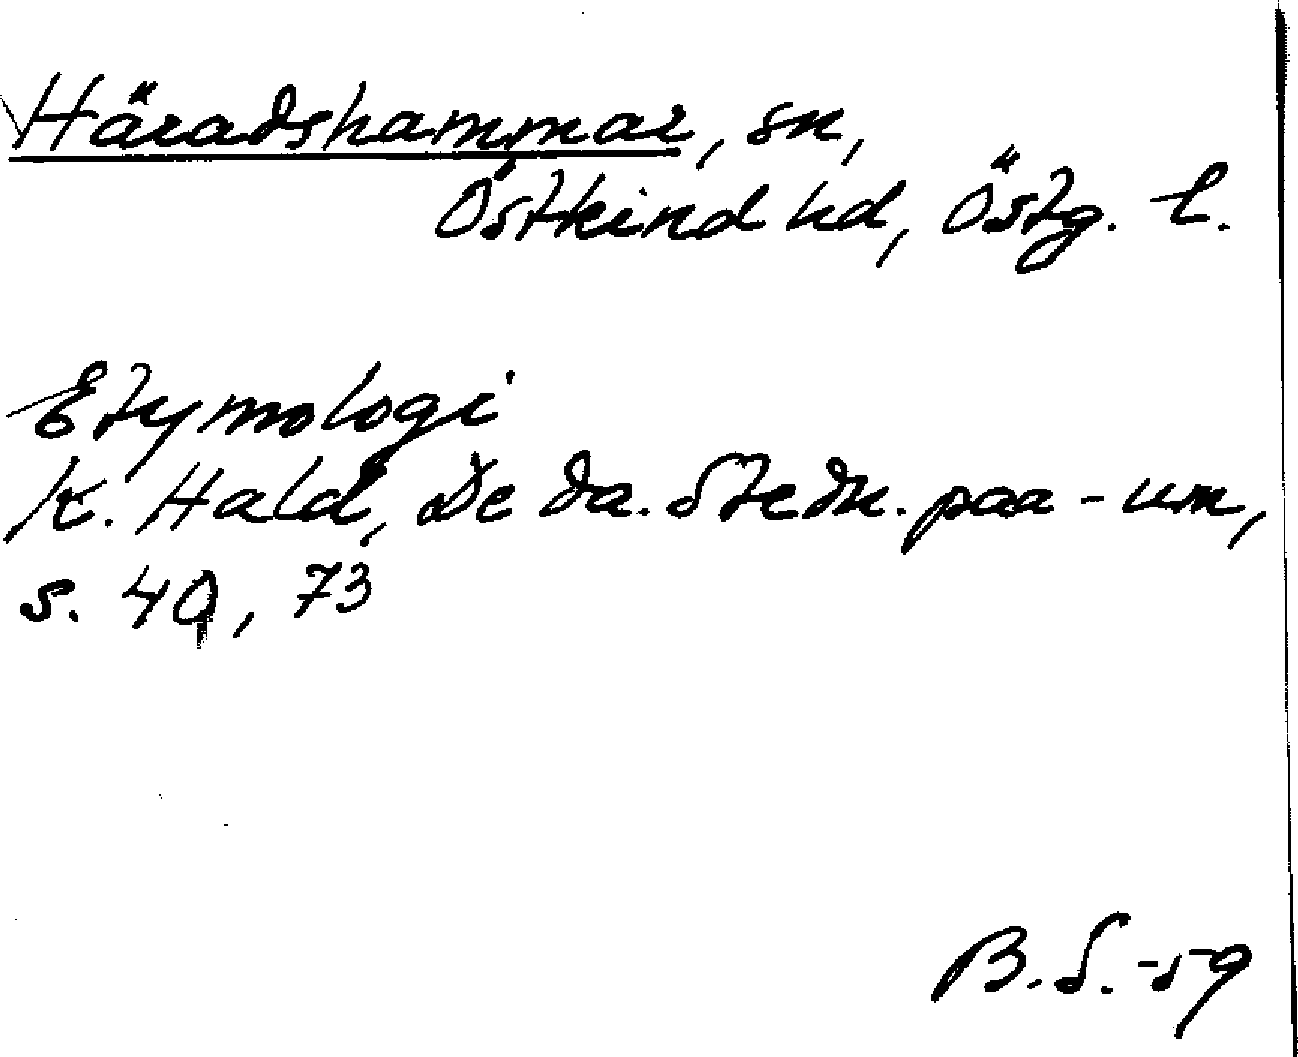 Häradshammar, sn,
Östkind hd, Östg. l.
Etymologi
K. Hald, De da. Stedn. paa -um,
s. 49, 73
B.S.-59